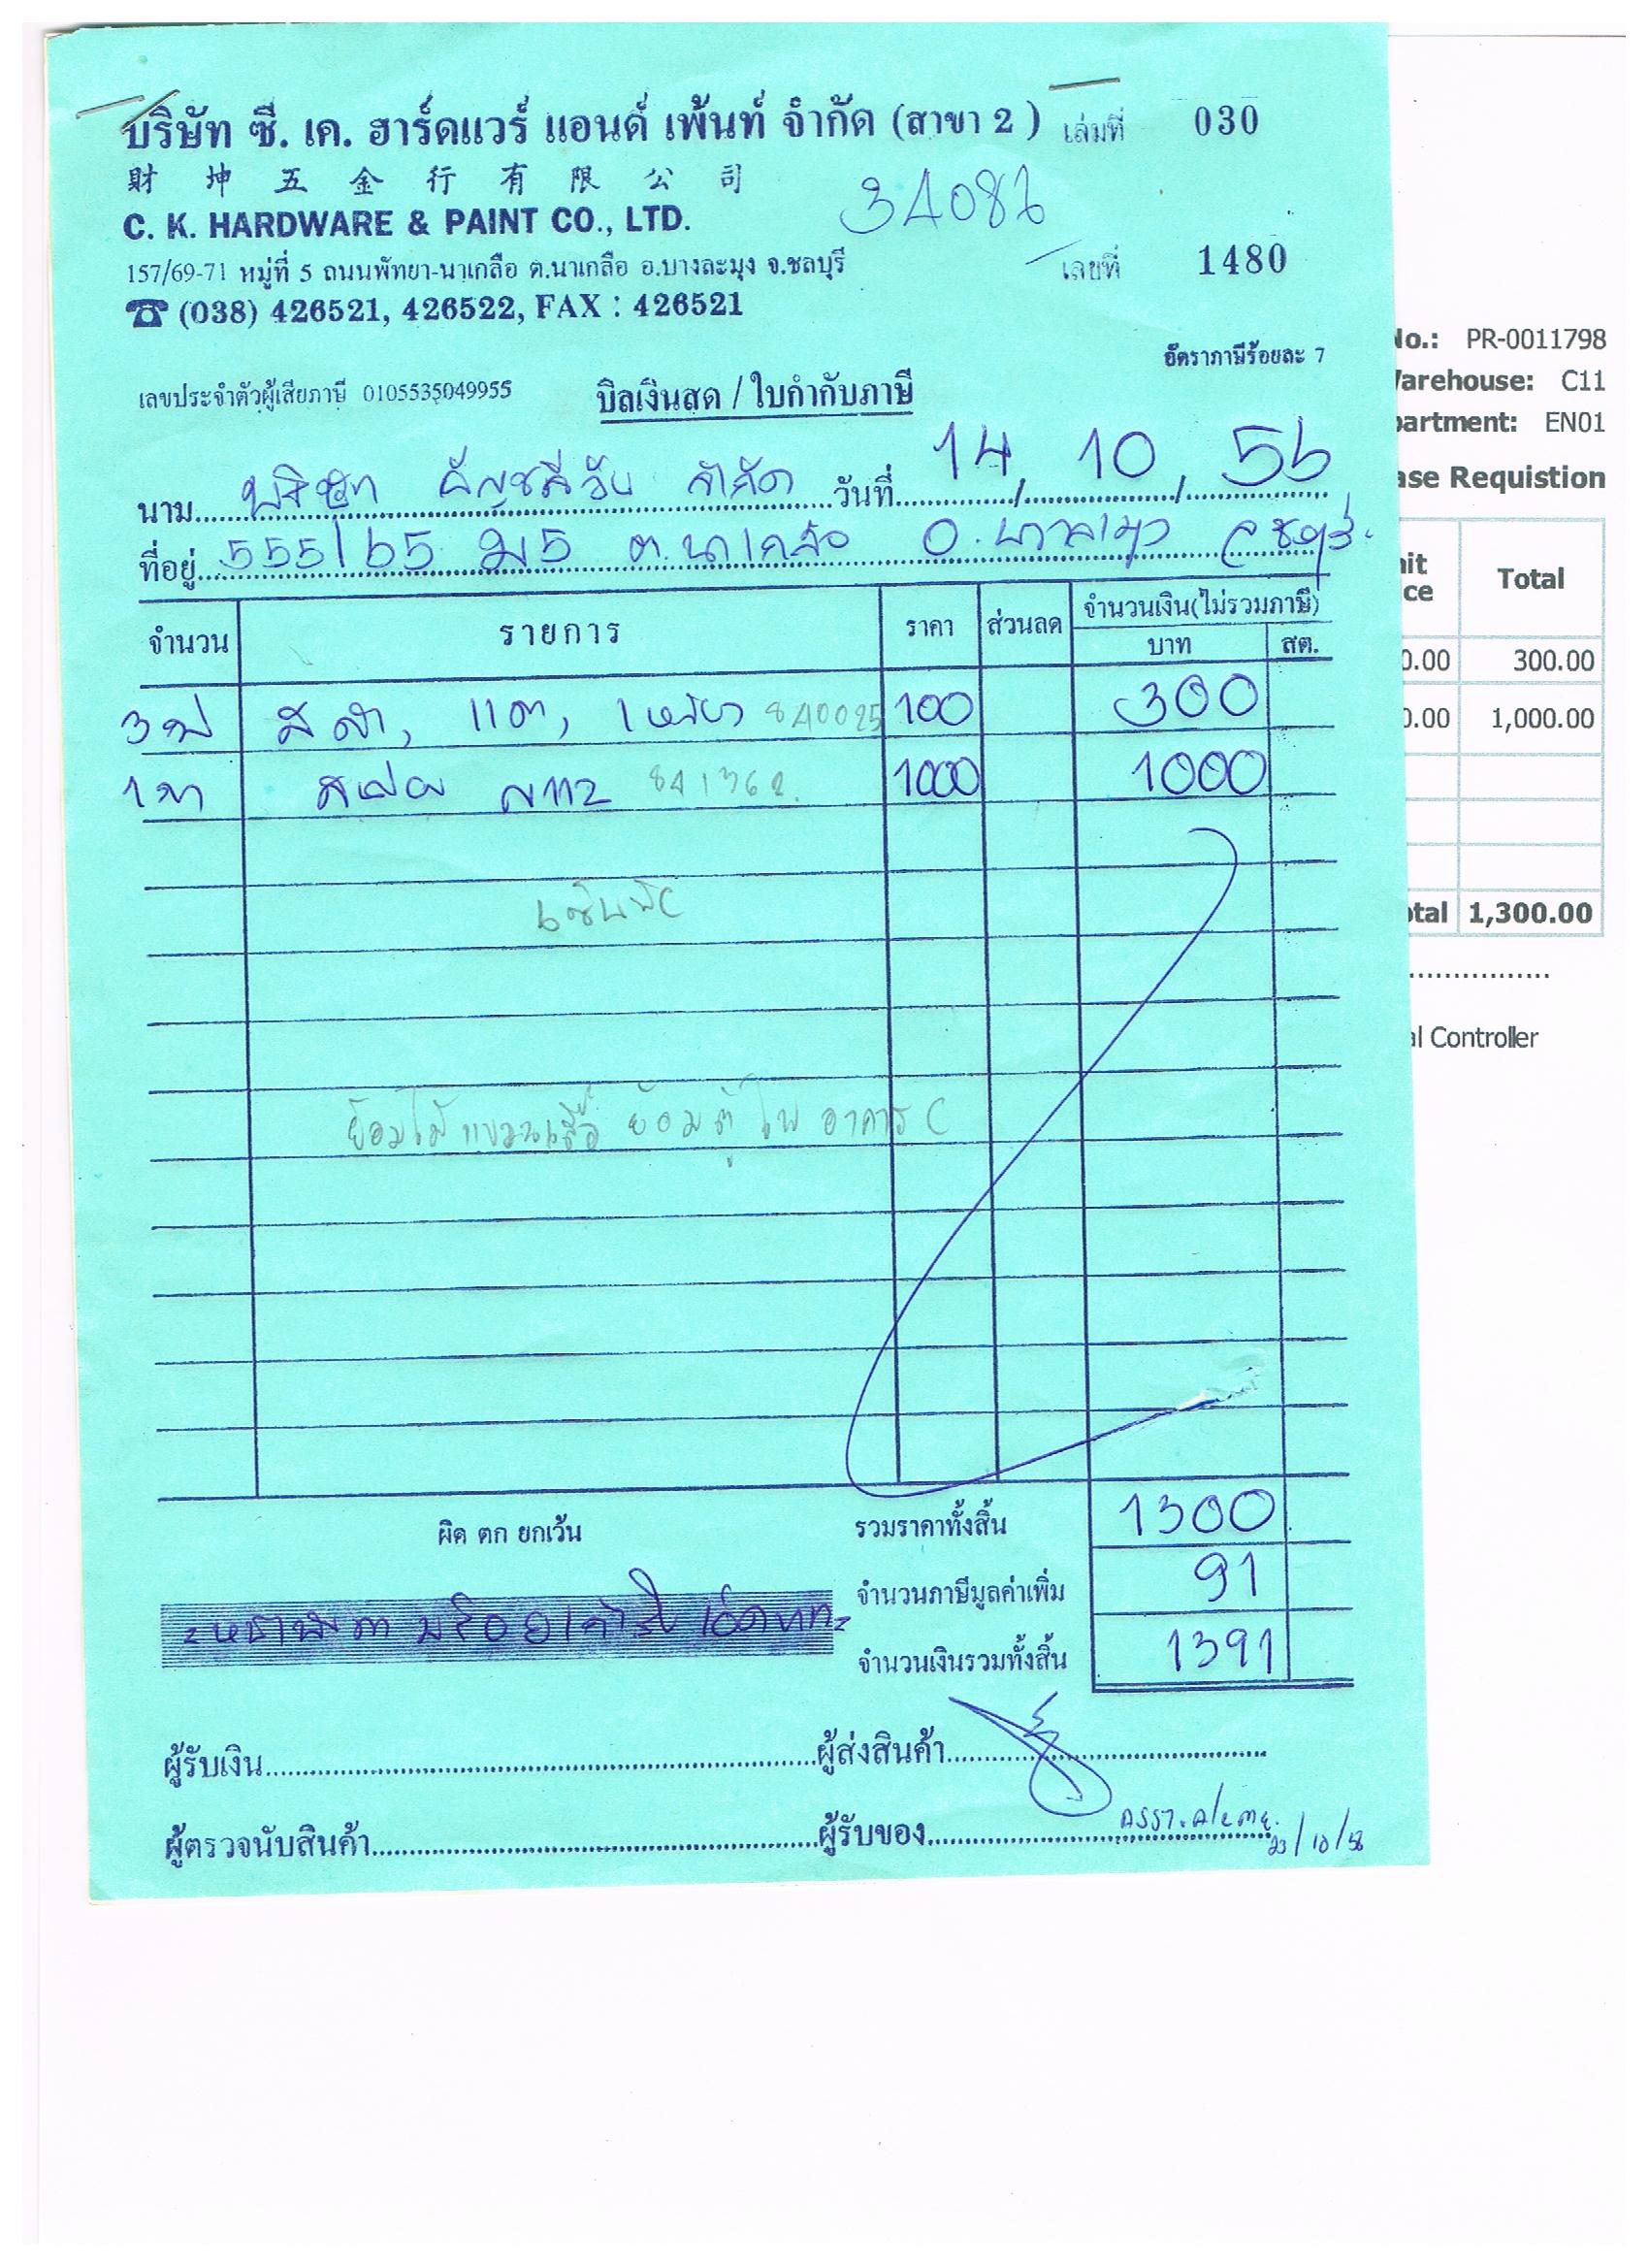 บริษัท ซี. เค. ฮาร์ดแวร์ แอนด์ เพ้นท์ จำกัด (สาขา 2 ) เล่มที่ 030
財坤五金行有限公司
3A086
C. K. HARDWARE & PAINT CO., LTD.
157/69-71 หมู่ที่ 5 ถนนพัทยา-นาเกลือ ต.นาเกลือ อ.บางละมุง จ.ชลบุรี เลขที่ 1480
☎ (038) 426521, 426522, FAX : 426521
อัตราภาษีร้อยละ 7
เลขประจำตัวผู้เสียภาษี 0105535049955 บิลเงินสด / ใบกำกับภาษี
นาม บริษัท จำกัด วันที่ 14 / 10 / 56
ที่อยู่ 555/65 ม5 ต.นาเกลือ อ.บางละมุง จ.ชลบุรี
จำนวน รายการ ราคา ส่วนลด จำนวนเงิน(ไม่รวมภาษี)
บาท สต.
3 สีดำ, แดง, เหลือง 8A0025 100 300
1 841362 1000 1000
ย้อมไม้แขวนเสื้อ ย้อมตู้ไฟ อาคาร C
ผิด ตก ยกเว้น รวมราคาทั้งสิ้น 1300
จำนวนภาษีมูลค่าเพิ่ม 91
=หนึ่งพันสามร้อยเก้าสิบเอ็ดบาท=
จำนวนเงินรวมทั้งสิ้น 1391
ผู้รับเงิน ผู้ส่งสินค้า
ผู้ตรวจนับสินค้า ผู้รับของ
23/10/56
No.: PR-0011798
Warehouse: C11
partment: EN01
ase Requistion
nit
ce Total
0.00 300.00
0.00 1,000.00
otal 1,300.00
al Controller